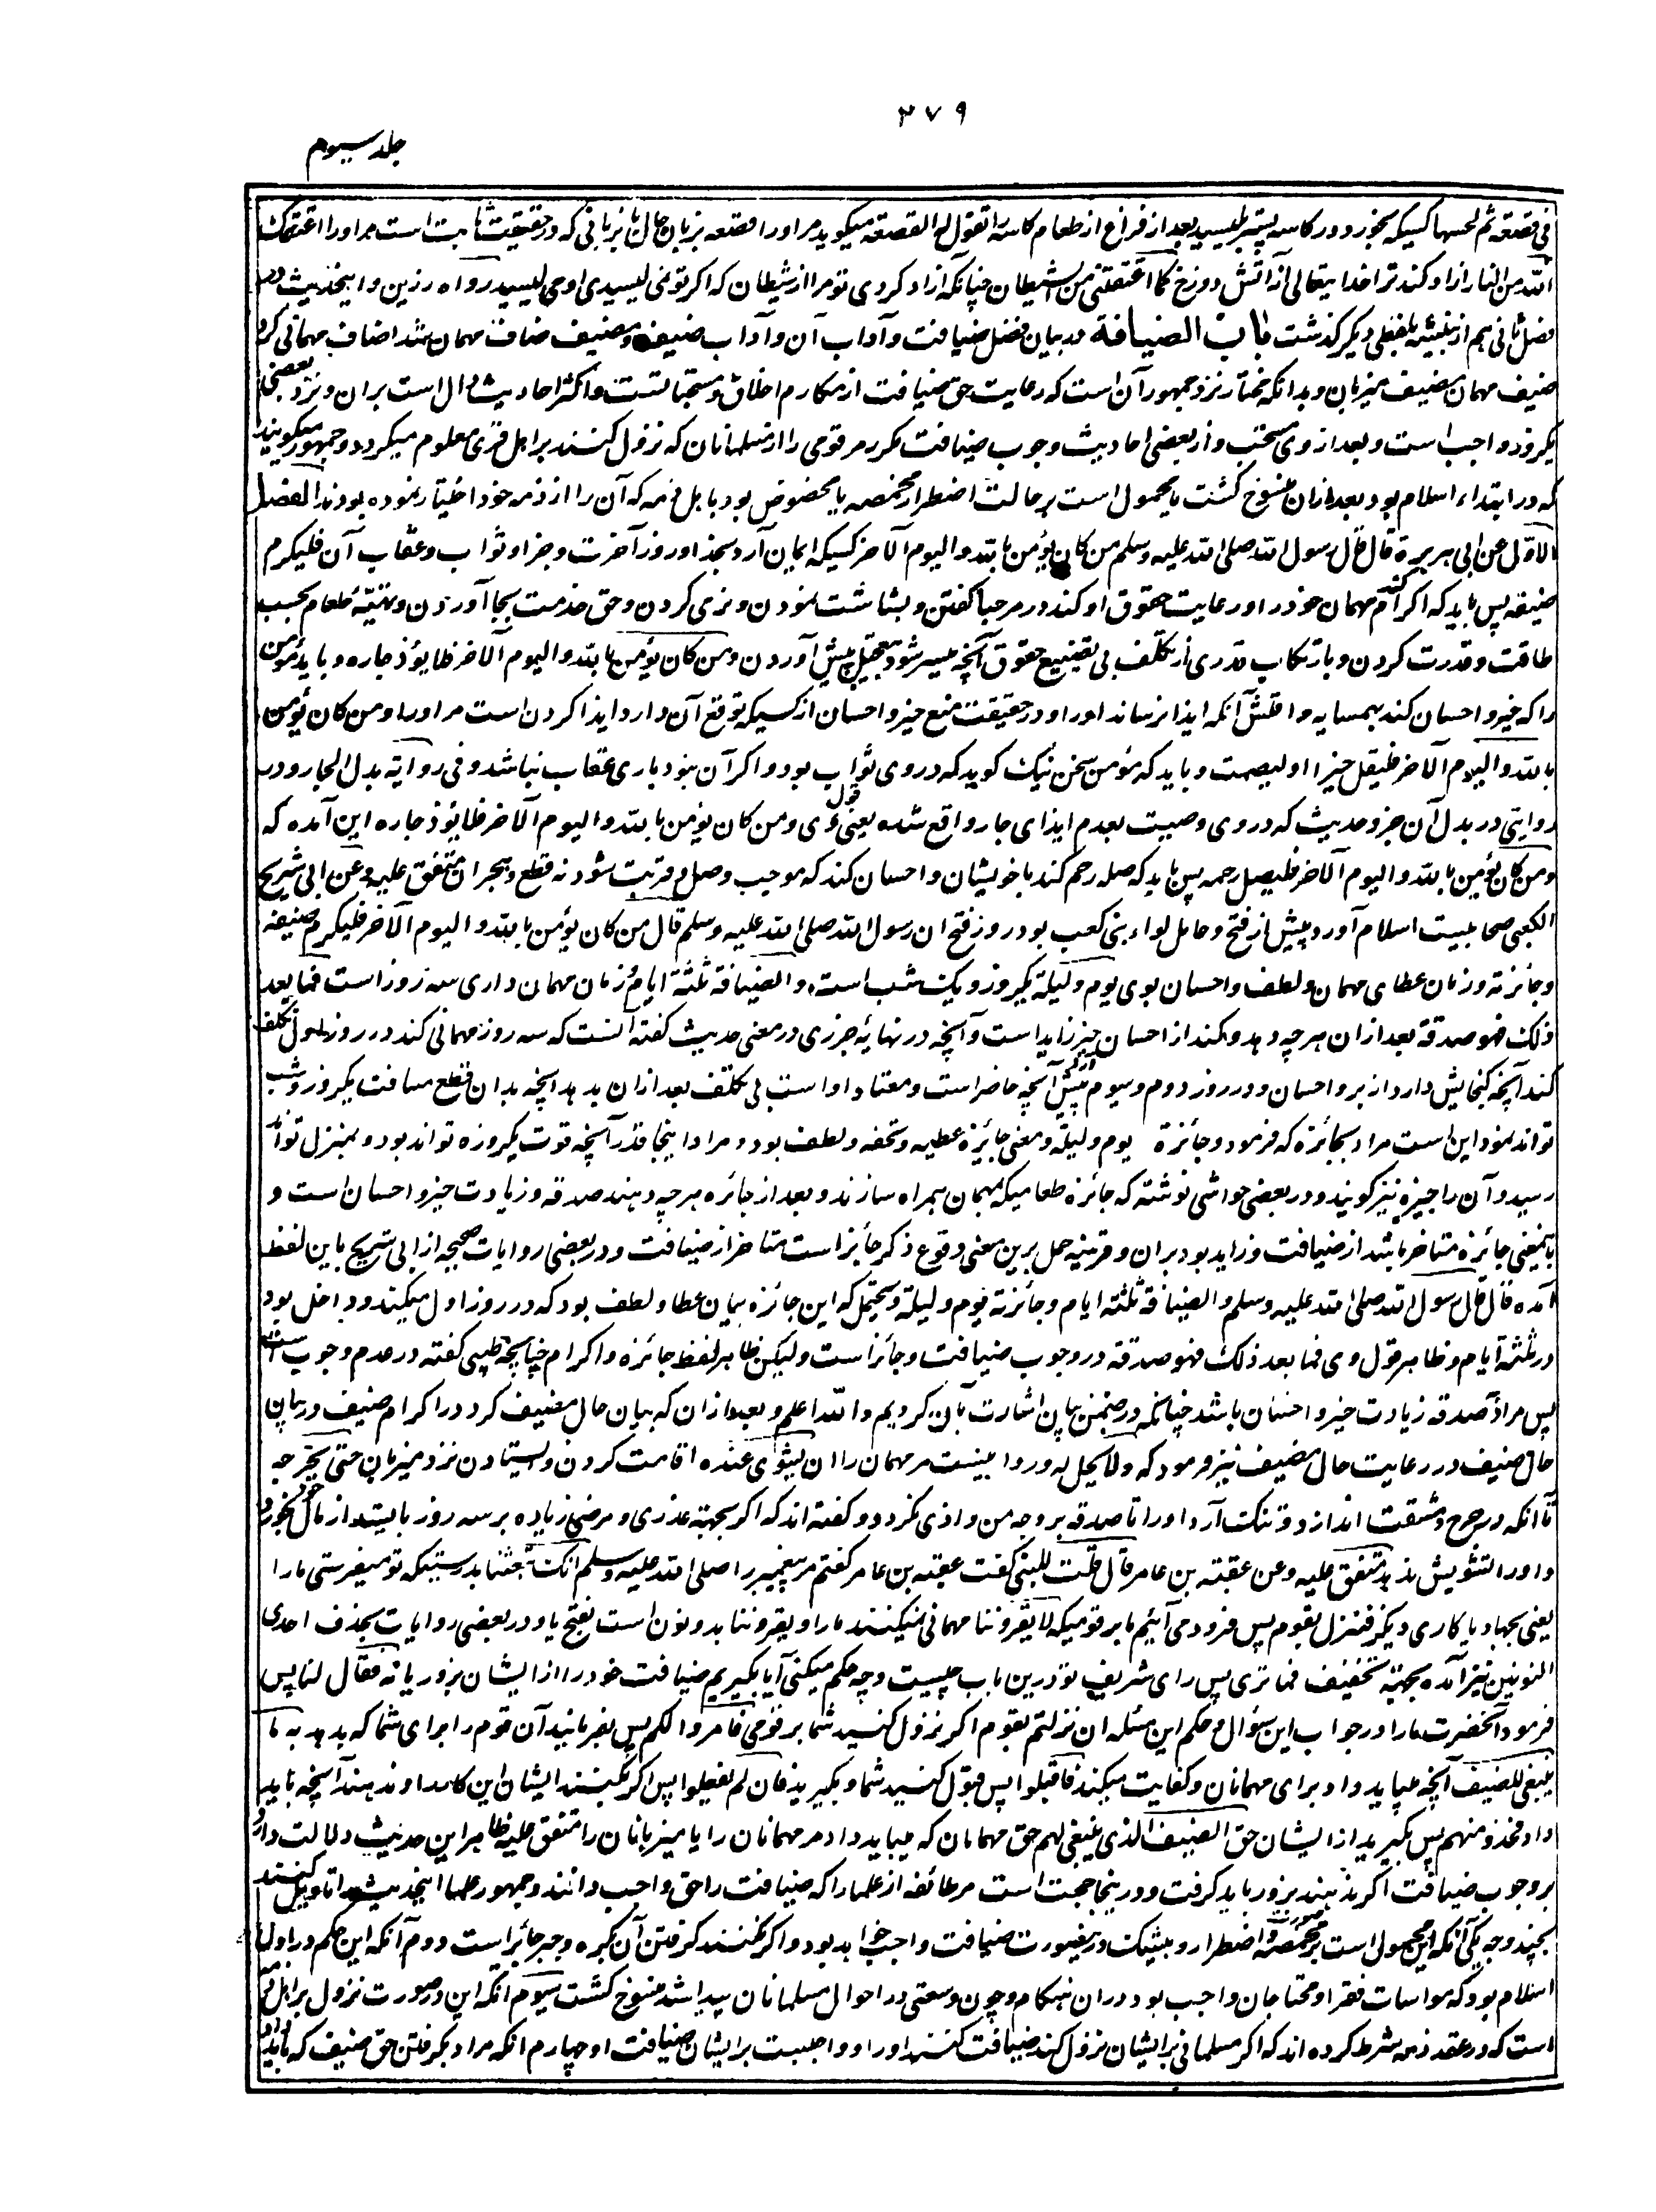 ٣٧٩
جلد سیوم
فی قصعة ثم لحسها کسیکه بخورد در کاسه پستر بلیسد بعد از فراغ از طعام کاسه را تقول له القصعة میکوید مر او را قصعه بزبان حال یا بزبانی که در حقیقت ثابت است مر او را اعتقک
الله من النار ازاد کند ترا خدایتعالی از آتش دوزخ کما اعتقتنی من الشیطان چنانکه ازاد کردی تو مرا از شیطان که اکر تو نمی لیسیدی او می لیسید رواه رزین و اینحدیث در
فصل ثانی هم از نبیشه بلفظی دیکر کذشت باب الضیافة در بیان فضل ضیافت و آداب آن و آداب ضیف و مضیف ضاف مهمان شد اضاف مهمانی کرد
ضیف مهمان مضیف میزبان و بدانکه مختار نزد جمهور آن است که رعایت حق ضیافت از مکارم اخلاق و مستحباتست و اکثر احادیث دال است بران و نزد بعضی
یکروز واجب است و بعد از وی مستحب و از بعضی احادیث وجوب ضیافت مکرر مر قومی را از مسلمانان که نزول کنند بر اهل قری معلوم میکردد و جمهور میکویند
که در ابتداء اسلام بود بعد ازان منسوخ کشت یا محمول است بر حالت اضطرار و مخمصه یا مخصوص بود باهل ذمه که آن را از ذمه خود اختیار نموده بودند الفصل
الاول عن ابی هریرة قال قال رسول الله صلی الله علیه وسلم من کان یؤمن بالله و الیوم الآخر کسیکه ایمان آرد بخدا و روز آخرت و جزا و ثواب و عقاب آن فلیکرم
ضیفه پس باید که اکرام کند مهمان خود را و رعایت حقوق او کند در مرحبا کفتن و بشاشت نمودن و نرمی کردن و حق خدمت بجا آوردن و تهیئه طعام بحسب
طاقت و قدرت کردن و بارتکاب قدری از تکلف بی تضییع حقوق آنچه میسر شود بتعجیل پیش آوردن و من کان یؤمن بالله و الیوم الآخر فلا یؤذ جاره و باید مؤمن
را که خیر و احسان کند بهمسایه و اقلش آنکه ایذا نرساند او را و در حقیقت منع خیر و احسان از کسیکه توقع آن دارد ایذا کردن است مر او را و من کان یؤمن
بالله و الیوم الآخر فلیقل خیرا او لیصمت و باید که مؤمن سخن نیک کوید که در وی ثواب بود و اکر آن نبود باری عقاب نباشد و فی روایة بدل الجار و در
روایتی در بدل آن جزو حدیث که در وی وصیت بعدم ایذای جار واقع شده یعنی قول وی و من کان یؤمن بالله و الیوم الآخر فلا یؤذ جاره این آمده که
و من کان یؤمن بالله و الیوم الآخر فلیصل رحمه پس باید که صله رحم کند با خویشان و احسان کند که موجب وصل و قربت شود نه قطع و هجران متفق علیه و عن ابی شریح
الکعبی صحابیست اسلام آورد پیش از فتح و حامل لواء بنی کعب بود روز فتح ان رسول الله صلی الله علیه وسلم قال من کان یؤمن بالله و الیوم الآخر فلیکرم ضیفه
و جائزته و زمان عطای مهمان و لطف و احسان بوی یوم و لیلة یکروز و یک شب است و الضیافة ثلثة ایام و زمان مهمان داری سه روز است فما بعد
ذلک فهو صدقة بعد ازان هرچه دهد و بکند از احسان چیز زاید است و آنچه در نهایه جزری در معنی حدیث کفته آنست که سه روز مهمانی کند در روز اول تکلف
کند آنچه کنجایش دارد از بر و احسان و در روز دوم و سیوم پیش آرد آنچه حاضر است و معتاد او است بی تکلف بعد ازان بدهد آنچه بدان قطع مسافت یکروز و شب
تواند نمود این است مراد بجائزه که فرمود و جائزة یوم و لیلة و معنی جائزه عطیه و تحفه و لطف بود و مراد اینجا قدر آنچه قوت یکروزه تواند بود و بمنزل تواند
رسید و آن را جیزه نیز کویند و در بعضی حواشی نوشته که جائزه طعامیکه بمهمان همراه سازند و بعد از جائزه هرچه دهند صدقه و زیادت خیر و احسان است و
باینمعنی جائزه متاخر باشد از ضیافت و زاید بود بران و قرینه حمل برین معنی وقوع ذکر جائزه است متاخر از ضیافت و در بعضی روایات صحیحه از ابی شریح باین لفظ
آمده قال قال رسول الله صلی الله علیه وسلم و الضیافة ثلثة ایام و جائزته یوم و لیلة و محتمل که این جائزه بیان عطا و لطف بود که در روز اول میکند و داخل بود
در ثلثة ایام و ظاهر قول وی فما بعد ذلک فهو صدقة در وجوب ضیافت و جائز است و لیکن ظاهر لفظ جائزه و اکرام چنانچه طیبی کفته در عدم وجوب است
پس مراد بصدقه زیادت خیر و احسان باشد چنانکه در ضمن بیان اشارت بآن کردیم والله اعلم و بعد ازان که بیان حال مضیف کرد در اکرام ضیف در بیان
حال ضیف در رعایت حال مضیف نیز فرمود که و لا یحل له و روا نیست مر مهمان را ان یثوی عنده اقامت کردن و ایستادن نزد میزبان حتی یحرجه
تا آنکه در حرج و مشقت اندازد و تنکت آرد او را تا صدقه بر وجه من و اذی نکردد و کفته اند که اکر بجهة عذری و مرضی زیاده بر سه روز بایستد از مال خود بخورد
و او را تشویش ندهد متفق علیه و عن عقبة بن عامر قال قلت للنبی کفت عقبة بن عامر کفتم مر پیغمبر را صلی الله علیه وسلم انک تبعثنا بدرستیکه تو میفرستی ما را
یعنی بجهاد یا کاری دیکر فننزل بقوم پس فرود می آئیم ما بر قومیکه لا یقروننا مهمانی نمیکنند ما را و یقروننا بدو نون است بفتح یا و در بعضی روایات بحذف احدی
النونین نیز آمده بجهة تخفیف فما تری پس رای شریف تو درین باب چیست و چه حکم میکنی آیا بکیریم ضیافت خود را از ایشان بزور یا نه فقال لنا پس
فرمود آنحضرت ما را در جواب این سؤال و حکم این مسئله ان نزلتم بقوم اکر نزول کنید شما بر قومی فامروا لکم پس بفرمانید آن قوم را برای شما که بدهد به ما
ینبغی للضیف آنچه میباید داد برای مهمانان و کفایت میکند فاقبلوا پس قبول کنید شما و بکیرید فان لم یفعلوا پس اکر نکنند ایشان این کار را و ندهند آنچه باید
داد فخذوا منهم پس بکیرید از ایشان حق الضیف الذی ینبغی لهم حق مهمانان که میباید داد مر مهمانان را یا میزبانان را متفق علیه ظاهر این حدیث دلالت دارد
بر وجوب ضیافت اکر ندهند بزور باید کرفت و درینجا حجت است مر طائفه از علما را که ضیافت را حق واجب دانند و جمهور علما اینحدیث را تاویل کنند
بچند وجه یکی آنکه این محمول است بر صورت مخمصه و اضطرار و بیشک درینصورت ضیافت واجب خواهد بود و اکر نکنند کرفتن آن بکره و جبر جائز است دوم آنکه این حکم در اول
اسلام بود که مواسات فقرا و محتاجان واجب بود دران هنکام و چون وسعتی در احوال مسلمانان پیدا شد منسوخ کشت سیوم آنکه این در صورت نزول بر اهل ذمه
است که در عقد ذمه شرط کرده اند که اکر مسلمانی بر ایشان نزول کند ضیافت کنند او را و واجبست بر ایشان ضیافت او چهارم آنکه مراد بکرفتن حق ضیف که باید